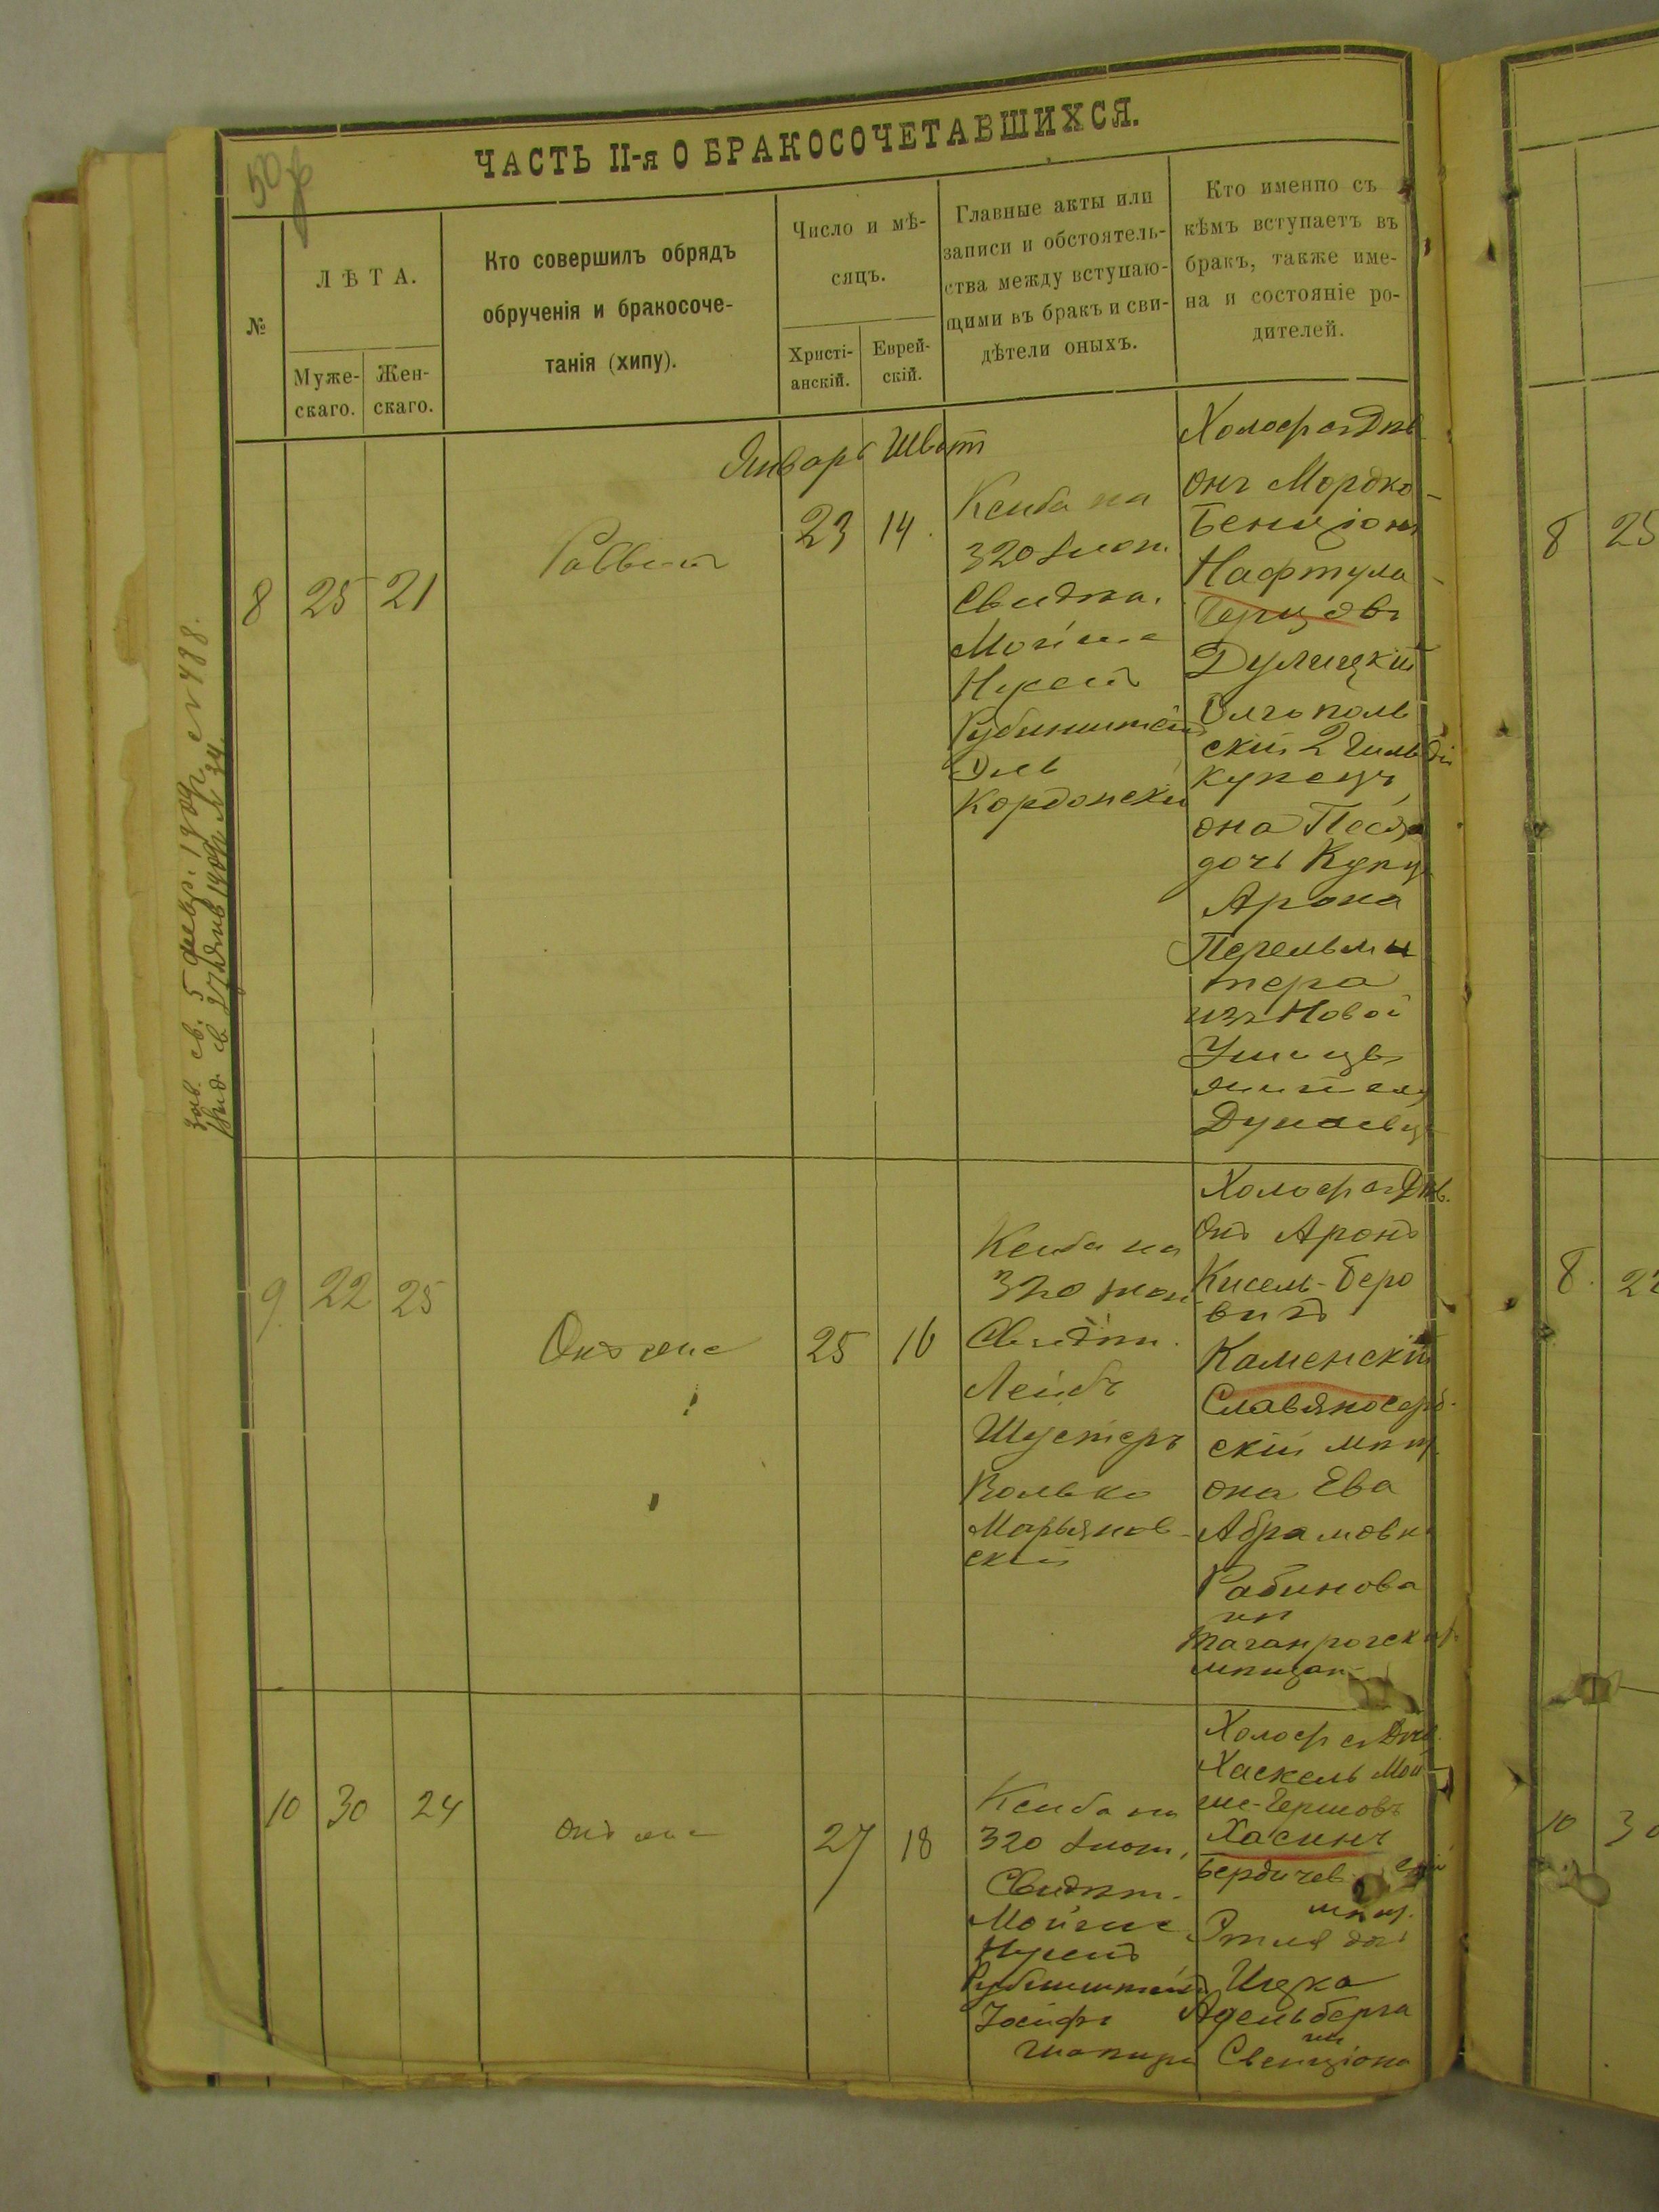 50
ЧАСТЬ II-я О БРАКОСОЧЕТАВШИХСЯ.
№
ЛѢТА.
Муже-
скаго.
Жен-
скаго.
Кто совершилъ обрядъ
обрученія и бракосоче-
танія (хипу).
Число и мѣ-
сяцъ.
Христі-
анскій.
Еврей-
скій.
Главные акты или
записи и обстоятель-
ства между вступаю-
щими въ бракъ и сви-
дѣтели оныхъ.
Кто именно съ
кѣмъ вступаетъ въ
бракъ, также име-
на и состояніе ро-
дителей.
Январь Шватъ
8
25
21
Раввинъ
23
14.
Ксиба на
320 злот.
Свидѣт.
Мойше
Нусенъ
Рубинштейнъ
Кордонскій
Холос. съ Дѣв.
Онъ Мордко-
Бенціонъ
Нафтула-
Герцовъ
Дулицкій
Олгополь
скій 2 Гильдіи
купецъ,
она Песя
дочь Купц
Арона
Перельми
тера
изъ Новой
Ушицы
Дунаевц
зав. св. 5 февр. 1909г. № 488.
9.
22
25
Онъ же
25
16
Ксиба на
320 злот
Свидѣт.
Лейбъ
Шустеръ
Волько
Марьянов-
скій
Холос. съ Дѣв.
Онъ Аронъ
Кисель-Беро
вичъ
Каменскій
Славяносерб-
скій мѣщ.
она Ева
Абрамовн
Рабинова
ич
таганрогск
мѣщан
10
30
24
онъ же
27
18
Ксиба на
320 злот.
Свидѣт.
Мойше
Нусенъ
Рубинштейнъ
Іосифъ
Шапиро
Холос. съ Дѣв.
Хаскель Мой
ше-Гершовъ
Хасинъ
Бердичев скій
мѣщ.
Этля доч
Ицка
Адельберга
из
Свенціона
8
25
8.
22
10
30